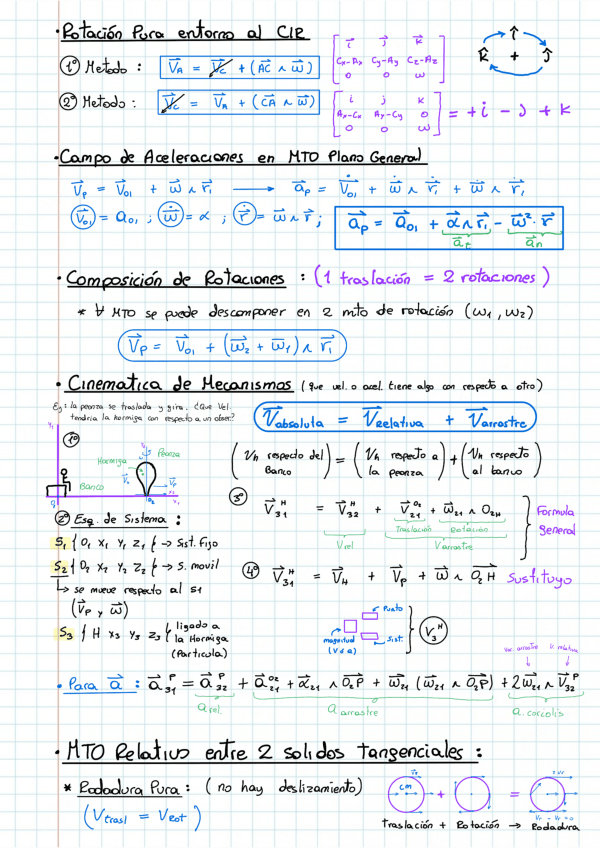 · Rotación Pura entorno al CIR
1º Metodo : V⃗A = V⃗C + (A⃗C ∧ ω⃗)
i⃗ j⃗ k⃗
Cx-Ax Cy-Ay Cz-Az
0 0 ω
î
k̂ + ĵ
2º Metodo : V⃗C = V⃗A + (C⃗A ∧ ω⃗)
i j k
Ax-Cx Ay-Cy 0
0 0 ω
= +i - j + k
· Campo de Aceleraciones en MTO Plano General
V⃗P = V⃗01 + ω⃗ ∧ r⃗1 → a⃗P = V⃗̇01 + ω⃗̇ ∧ r⃗1 + ω⃗ ∧ r⃗̇1
V⃗̇01 = a01 ; ω⃗̇ = α ; r⃗̇ = ω⃗ ∧ r⃗1 ; a⃗P = a⃗01 + α⃗ ∧ r⃗1 - ω⃗² · r⃗
a⃗t a⃗n
· Composición de Rotaciones : (1 traslación = 2 rotaciones)
* ∀ MTO se puede descomponer en 2 mto de rotación (ω1, ω2)
V⃗P = V⃗01 + (ω⃗2 + ω⃗1) ∧ r⃗1
· Cinematica de Mecanismos (que vel. o acel. tiene algo con respecto a otro)
Ej: la peonza se traslada y gira. ¿Que vel.
tendria la hormiga con respecto a un obser?
V⃗absoluta = V⃗relativa + V⃗arrastre
1º
Peonza
Hormiga
Banco
(Vh respecto del Banco) = (Vh respecto a la peonza) + (Vh respecto al banco)
3º V⃗31ᴴ = V⃗32ᴴ + V⃗21ᴼ² + ω⃗21 ∧ O2H
Traslación Rotación
Vrel Varrastre
Formula
general
2º Esq. de Sistema :
S1 { O1 X1 Y1 Z1 { → Sist. Fijo
S2 { O2 X2 Y2 Z2 { → S. movil
↳ se mueve respecto al S1
(V⃗P y ω⃗)
S3 { H X3 Y3 Z3 } ligado a
la Hormiga
(Particula)
4º V⃗31ᴴ = V⃗H + V⃗P + ω⃗ ∧ O⃗2H Sustituyo
Punto
magnitud
(V ó a)
Sist.
V⃗3ᴴ
Vel. arrastre V. relativa
· Para a⃗ : a⃗31ᴾ = a⃗32ᴾ + a⃗21ᴼ² + α⃗21 ∧ O⃗2P + ω⃗21 (ω⃗21 ∧ O⃗2P) + 2ω⃗21 ∧ V⃗32ᴾ
a rel. a arrastre a. corcolis
· MTO Relativo entre 2 solidos tangenciales :
* Rodadura Pura : (no hay deslizamiento)
(Vtrasl = VRot)
CM + =
Traslación + Rotación → Rodadura